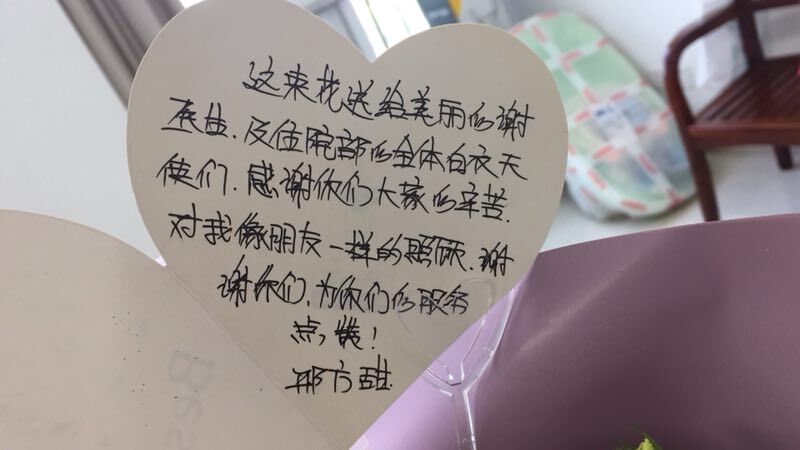 这束花送给美丽的谢
医生.及住院部的全体白衣天
使们.感谢你们大家的辛苦.
对我像朋友一样的照顾.谢
谢你们.为你们的服务
点赞!
邢方甜
Bes